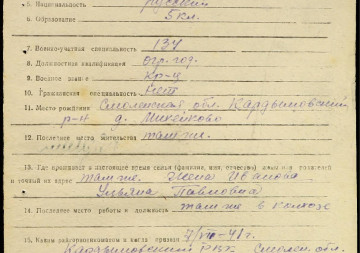 5. Национальность русский
6. Образование 5 кл.
7. Военно-учетная специальность 134
8. Должностная квалификация огр. год.
9. Военное звание Кр-ц
10. Гражданская специальность нет
11. Место рождения Смоленская обл. Кардымовский
р-н д. Микейково
12. Последнее место жительства там же.
13. Где проживает в настоящее время семья (фамилия, имя, отчество)
и точный их адрес там же. Жена Иванова
Ульяна Павловна
14. Последнее место работы и должность там же в колхозе
15. Каким райвоенкоматом и когда призван 7/VII-41 г.
Кардымовский РВК Смолен. обл.